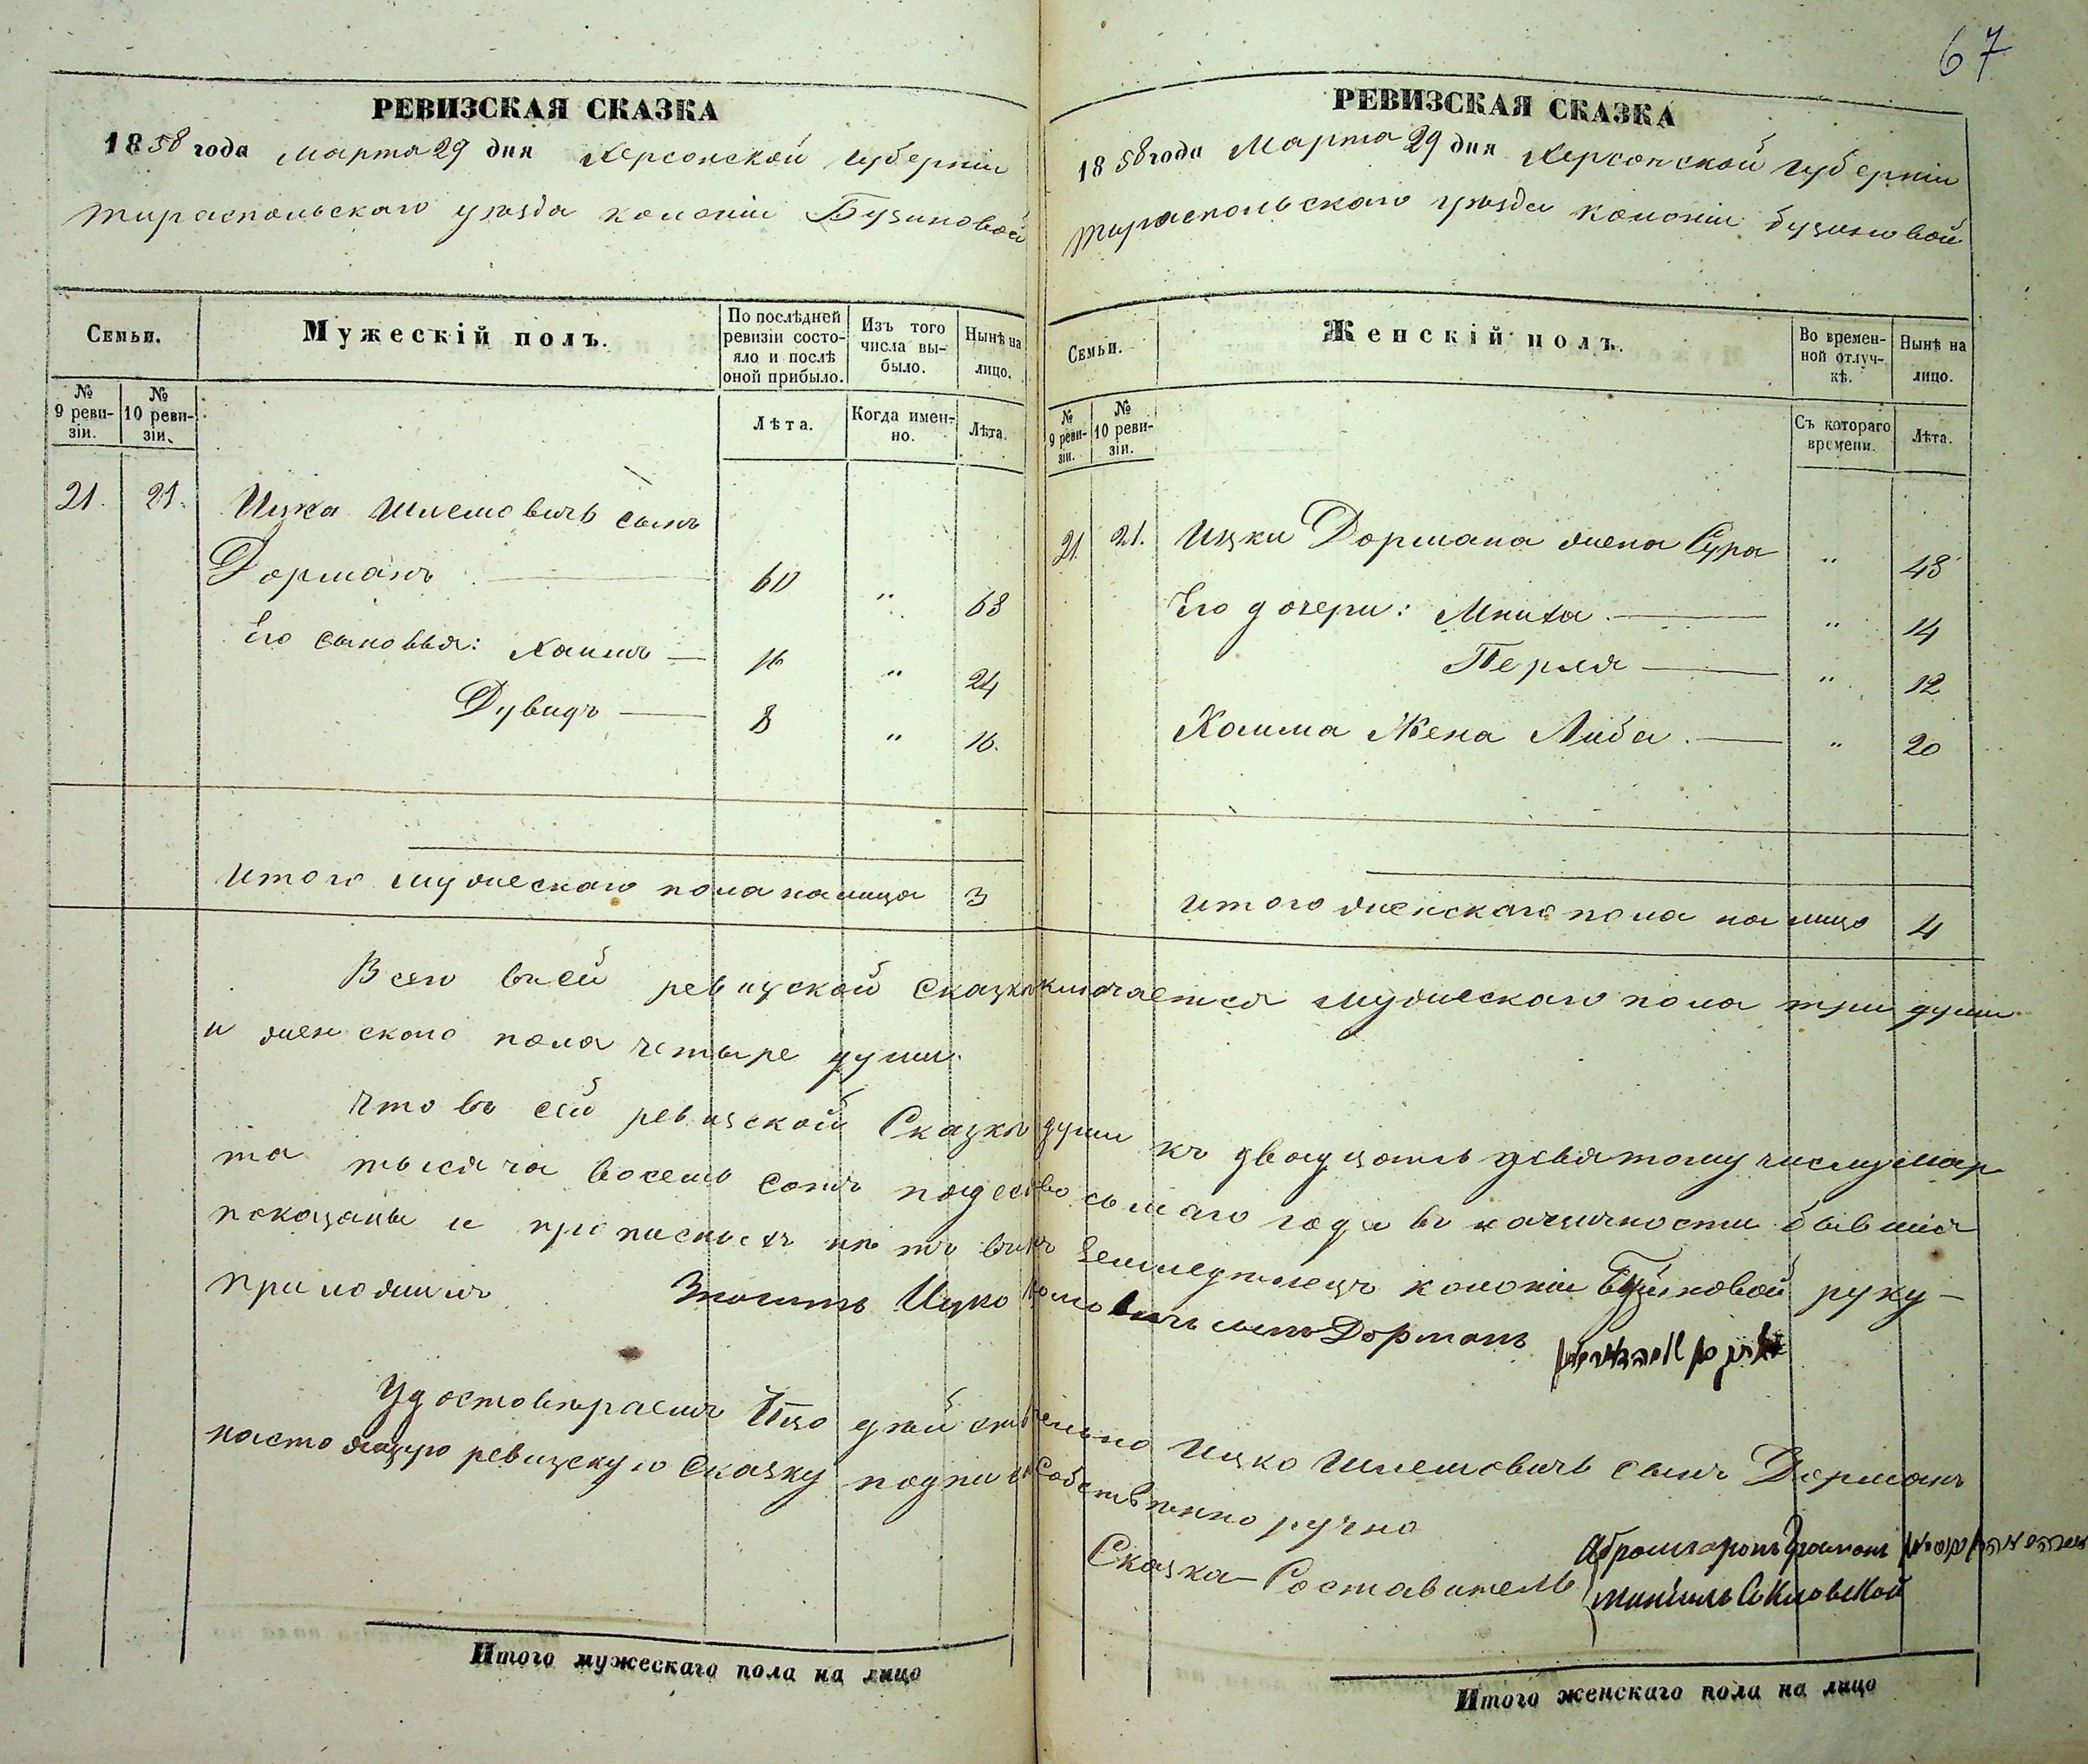 67
РЕВИЗСКАЯ СКАЗКА
1858 года Марта 29 дня Херсонской Губерніи
тираспольскаго уѣзда колоніи Бузиновой
Семьи.
Мужескій полъ.
По послѣдней ревизіи состояло и послѣ оной прибыло.
Изъ того числа выбыло.
Нынѣ на лицо.
№ 9 ревизіи.
№ 10 ревизіи.
Лѣта.
Когда именно.
Лѣта.
21. 21. Ицка Шлемовичъ сынъ
Дорманъ 60 " 68
Его сыновья: Хаимъ — 16 " 24
Дувидъ — 8 " 16.
Итого мужескаго пола налицо 3
РЕВИЗСКАЯ СКАЗКА
1858 года Марта 29 дня Херсонской Губерніи
тираспольскаго уѣзда колоніи бузиновой
Семьи.
Женскій полъ.
Во временной отлучкѣ.
Нынѣ на лицо.
№ 9 ревизіи.
№ 10 ревизіи.
Съ котораго времени.
Лѣта.
21. 21. Ицки Дормана жена Сура " 48
Его дочери: Мниха — " 14
Перля — " 12
Хаима Жена Либа. — " 20
Итого женскаго пола на лицо 4
Всего въ сей ревизской Сказкѣ заключается мужескаго пола три души
и женскаго пола четыре души.
Что въ сей ревизской Сказкѣ души къ двадцать девятому числу мар
та тысяча восемь сотъ пядесять восьмаго года въ наличности бывшія
показаны и прописныхъ нѣтъ въ томъ земледѣлецъ колоніи Бузиновой руку-
приложилъ Ицко сынъ Дорманъ
Удостовѣряемъ Что дѣйствительно Ицко Шлемовичъ сынъ Дорманъ
настоящую ревизскую Сказку подписалъ Собственно ручно
Сказка-Составители
Итого мужескаго пола на лицо
Итого женскаго пола на лицо